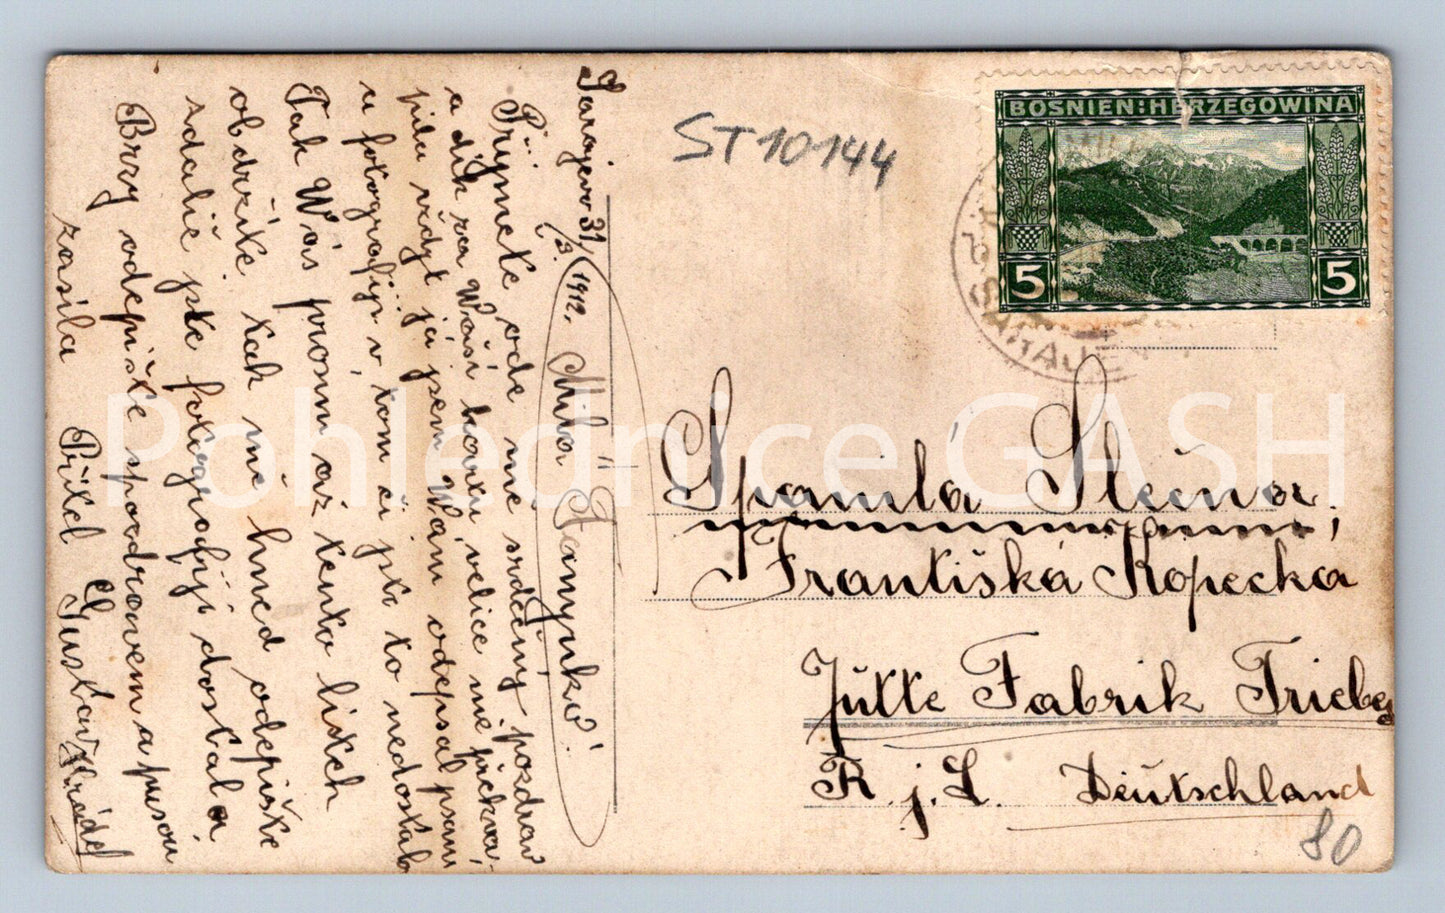 Sarajevo 31/3. 1912.
Milá Fanynko!
Přijmete ode mne srdečný pozdrav
a dík za Waší kartu, velice mě překva-
pila vždyt já jsem Wám odepsal psaní
a fotografiji v tom či jste to nedostala
Tak Wás prosím až tento lístek
obdržíte tak mě hned odepište
zdaliž jste fotografiji dostala
Brzy odepište s pozdravem a pusou
zasíla Přítel Gustav Hrádel
ST10144
BOSNIEN:HERZEGOWINA
5 5
SARAJE
Spanilá Slečna
Františka Kopecka
Jutte Fabrik Triebes
R. j. L. Deutschland
80
Pohlednice GASH